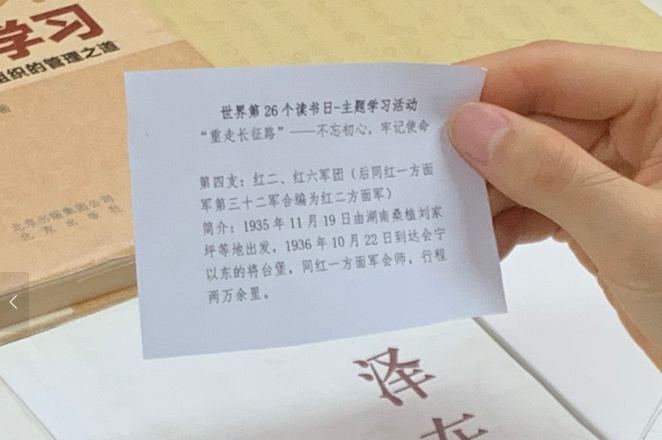 学习
组织的管理之道
北京出版集团公司
北京出版社
世界第26个读书日-主题学习活动
“重走长征路”——不忘初心，牢记使命
第四支：红二、红六军团（后同红一方面
军第三十二军合编为红二方面军）
简介：1935年11月19日由湖南桑植刘家
坪等地出发，1936年10月22日到达会宁
以东的将台堡，同红一方面军会师，行程
两万余里。
泽
东